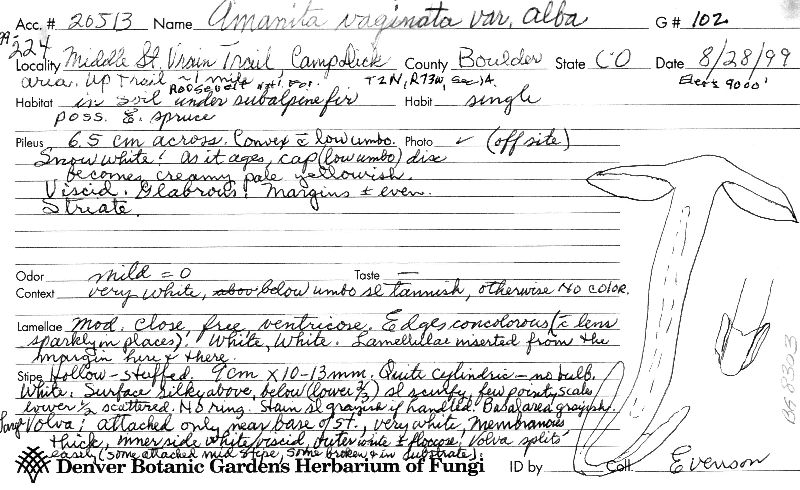 Acc. # 20513 Name Amanita vaginata var. alba G # 102
99-224
Locality Middle St. Vrain Trail Camp Dick County Boulder State CO Date 8/28/99
area. Up Trail ~1 mile Roosevelt Nat'l For. T2N, R73W, Sec. 14. Elev. 9000'
Habitat in soil under subalpine fir Habit single
poss. E. spruce
Pileus 6.5 cm across. Convex c̄ low umbo. Photo ✓ (off site)
Snow white! As it ages, cap (low umbo) disc
becomes creamy pale yellowish.
Viscid. Glabrous! Margins ± even.
Striate.
Odor mild = 0 Taste —
Context very white, abov below umbo sl tannish, otherwise NO COLOR.
Lamellae Mod. close, free, ventricose. Edges concolorous (c̄ lens
sparkly in places). White, White. Lamellulae inserted from the
margin here & there.
Stipe Hollow-stuffed. 9cm x 10-13mm. Quite cylindric - no bulb.
White. Surface silky above, below (lower 2/3) sl scurfy, few pointy scales
lower 1/2 scattered. NO ring. Stain sl grayish if handled. Basal area grayish.
Large Volva; attached only near base of st., very white, Membranous
thick, inner side white/viscid, outer white ± floccose. Volva splits
easily (some attached mid stipe, some broken & in substrate).
Denver Botanic Gardens Herbarium of Fungi ID by Coll. Evenson